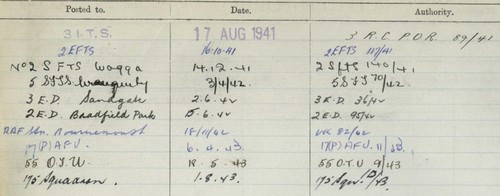 Posted to. Date. Authority.
3 I.T.S. 17 AUG 1941 3 R.C P.O.R. 89/41
2 EFTS 16.10.41 2 EFTS 117/41
No 2 S FTS Wagga 14.12.41 2 SFTS 140/41
5 SFTS 3/4/42. 5 SFTS 70/42.
3 E.D. Sandgate 2.6.42 3 E.D. 36/42
2 E.D. Bradfield Park 15.6.42 2 E.D. 95/42
RAF Stn. Bournemouth 18/11/42 UK 82/42
17(P) A.F.U. 6.4.43 17(P) A.F.U. 11/43.
55 O.T.U 18.5.43 55 O.T.U 9/43
175 Squadron. 1.8.43. 175 Sqn. /43